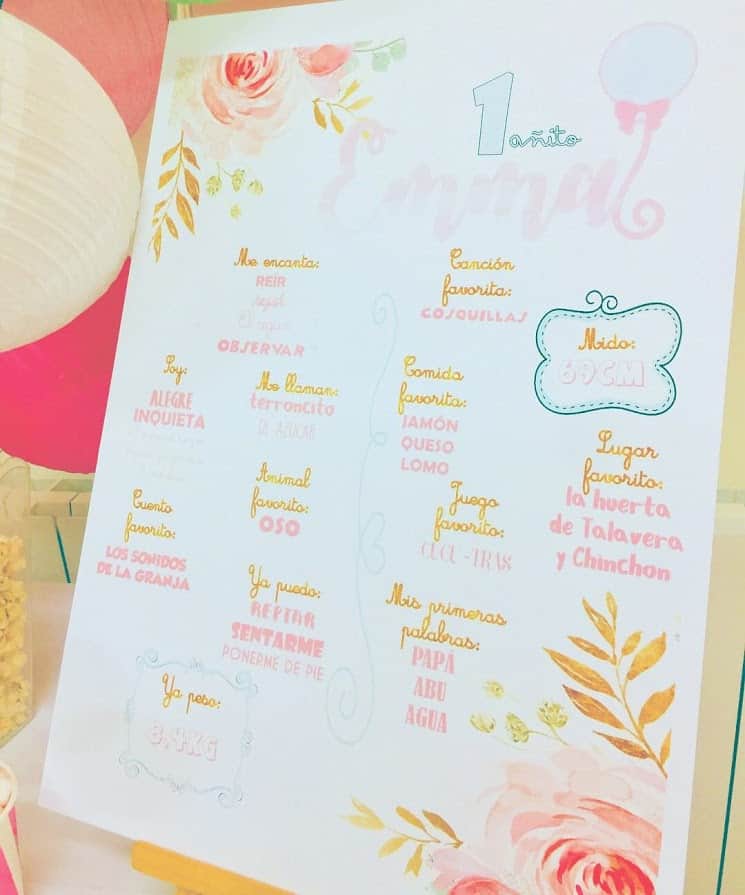 1 añito
Emma
Me encanta:
REÍR
OBSERVAR
Canción
favorita:
COSQUILLAS
Mido:
69CM
Soy:
ALEGRE
INQUIETA
Me llaman:
terroncito
DE AZUCAR
Comida
favorita:
JAMÓN
QUESO
LOMO
Lugar
favorito:
la huerta
de Talavera
y Chinchon
Cuento
favorito:
LOS SONIDOS
DE LA GRANJA
Animal
favorito:
OSO
Juego
favorito:
CUCU-TRAS
Ya puedo:
REPTAR
SENTARME
PONERME DE PIE
Mis primeras
palabras:
PAPÁ
ABU
AGUA
Ya peso:
8,4KG